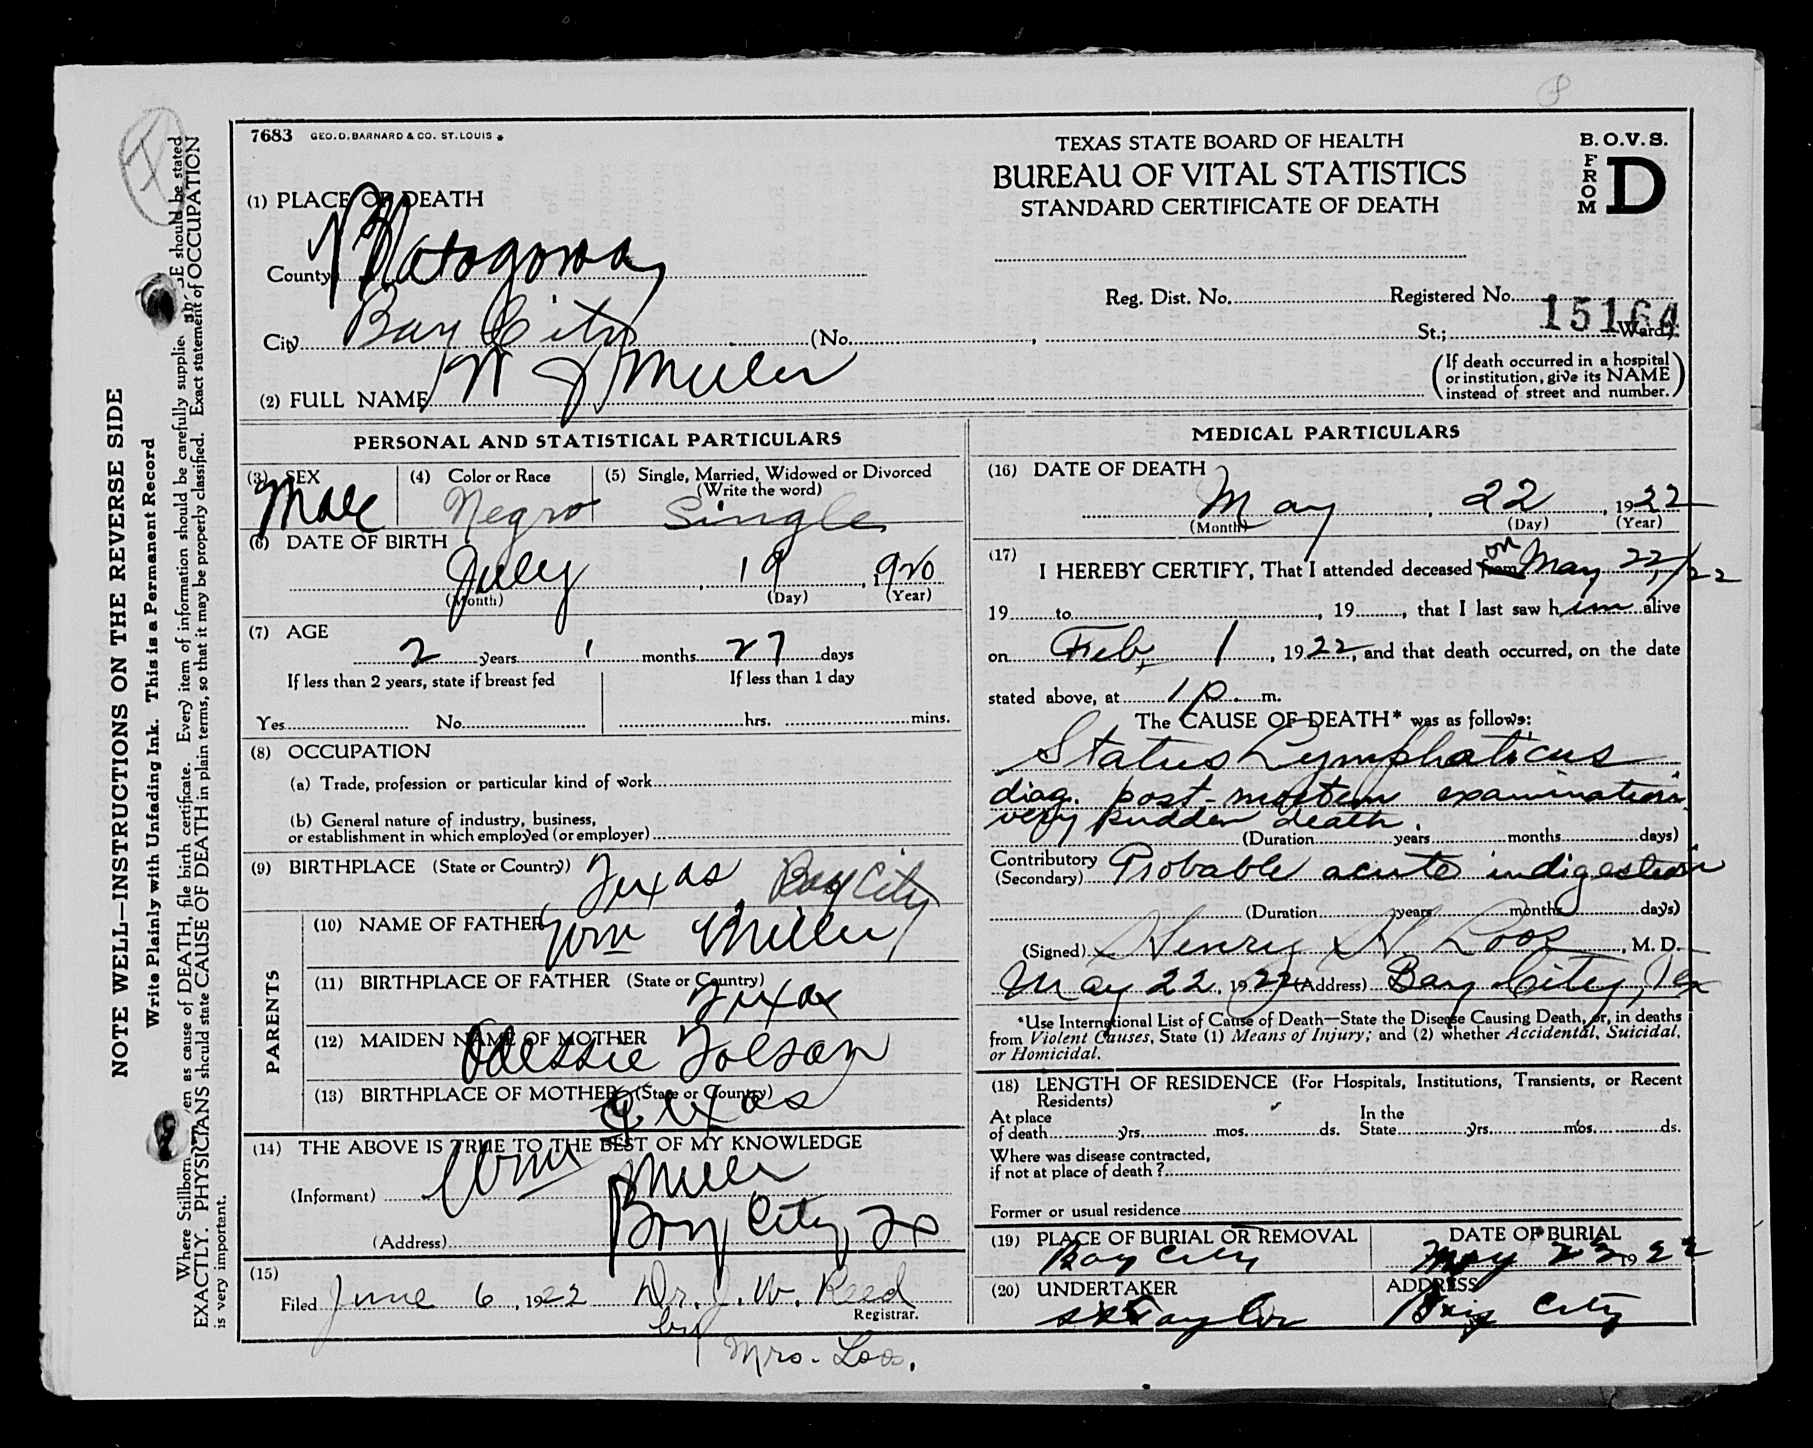 7683 GEO.D.BARNARD & CO. ST.LOUIS
TEXAS STATE BOARD OF HEALTH
BUREAU OF VITAL STATISTICS
STANDARD CERTIFICATE OF DEATH
B.O.V.S.
FROM D
(1) PLACE OF DEATH
County Matagorda
Reg. Dist. No. Registered No. 15164
City Bay City (No. , St.; Ward)
(If death occurred in a hospital or institution, give its NAME instead of street and number.)
(2) FULL NAME W J Miller
PERSONAL AND STATISTICAL PARTICULARS
(3) SEX
Male
(4) Color or Race
Negro
(5) Single, Married, Widowed or Divorced
(Write the word)
Single
(6) DATE OF BIRTH
July , 19 , 1920
(Month) (Day) (Year)
(7) AGE
2 years 1 months 27 days
If less than 2 years, state if breast fed
Yes No
If less than 1 day
hrs. mins.
(8) OCCUPATION
(a) Trade, profession or particular kind of work
(b) General nature of industry, business,
or establishment in which employed (or employer)
(9) BIRTHPLACE (State or Country) Texas Bay City
PARENTS
(10) NAME OF FATHER Wm Miller
(11) BIRTHPLACE OF FATHER (State or Country)
Texas
(12) MAIDEN NAME OF MOTHER
Odessie Tolson
(13) BIRTHPLACE OF MOTHER (State or Country)
Texas
(14) THE ABOVE IS TRUE TO THE BEST OF MY KNOWLEDGE
(Informant) Wm Miller
(Address) Bay City Tx
(15)
Filed June 6, 1922 Dr. J. W. Reed
Registrar.
by Mrs. Loos.
MEDICAL PARTICULARS
(16) DATE OF DEATH
May , 22 , 1922
(Month) (Day) (Year)
(17)
I HEREBY CERTIFY, That I attended deceased from on May 22,/22
19 to , 19 , that I last saw him alive
on Feb. 1 , 1922, and that death occurred, on the date
stated above, at 1 p. m.
The CAUSE OF DEATH* was as follows:
Status Lymphaticus
diag. post-mortem examination
very sudden death.
(Duration years months days)
Contributory
(Secondary) Probable acute indigestion
(Duration years months days)
(Signed) Henry H Loos, M. D.
May 22, 1922 (Address) Bay City, Tex
*Use International List of Cause of Death—State the Disease Causing Death, or, in deaths
from Violent Causes, State (1) Means of Injury; and (2) whether Accidental, Suicidal,
or Homicidal.
(18) LENGTH OF RESIDENCE (For Hospitals, Institutions, Transients, or Recent
Residents)
At place
of death yrs. mos. ds.
In the
State yrs. mos. ds.
Where was disease contracted,
if not at place of death?
Former or usual residence
(19) PLACE OF BURIAL OR REMOVAL
Bay City
DATE OF BURIAL
May 23 1922
(20) UNDERTAKER
Taylor
ADDRESS
Bay City
NOTE WELL—INSTRUCTIONS ON THE REVERSE SIDE
Write Plainly with Unfading Ink. This is a Permanent Record
Where Stillborn as cause of DEATH, file birth certificate. Every item of information should be carefully supplied. should be stated
EXACTLY. PHYSICIANS should state CAUSE OF DEATH in plain terms, so that it may be properly classified. Exact statement of OCCUPATION
is very important.